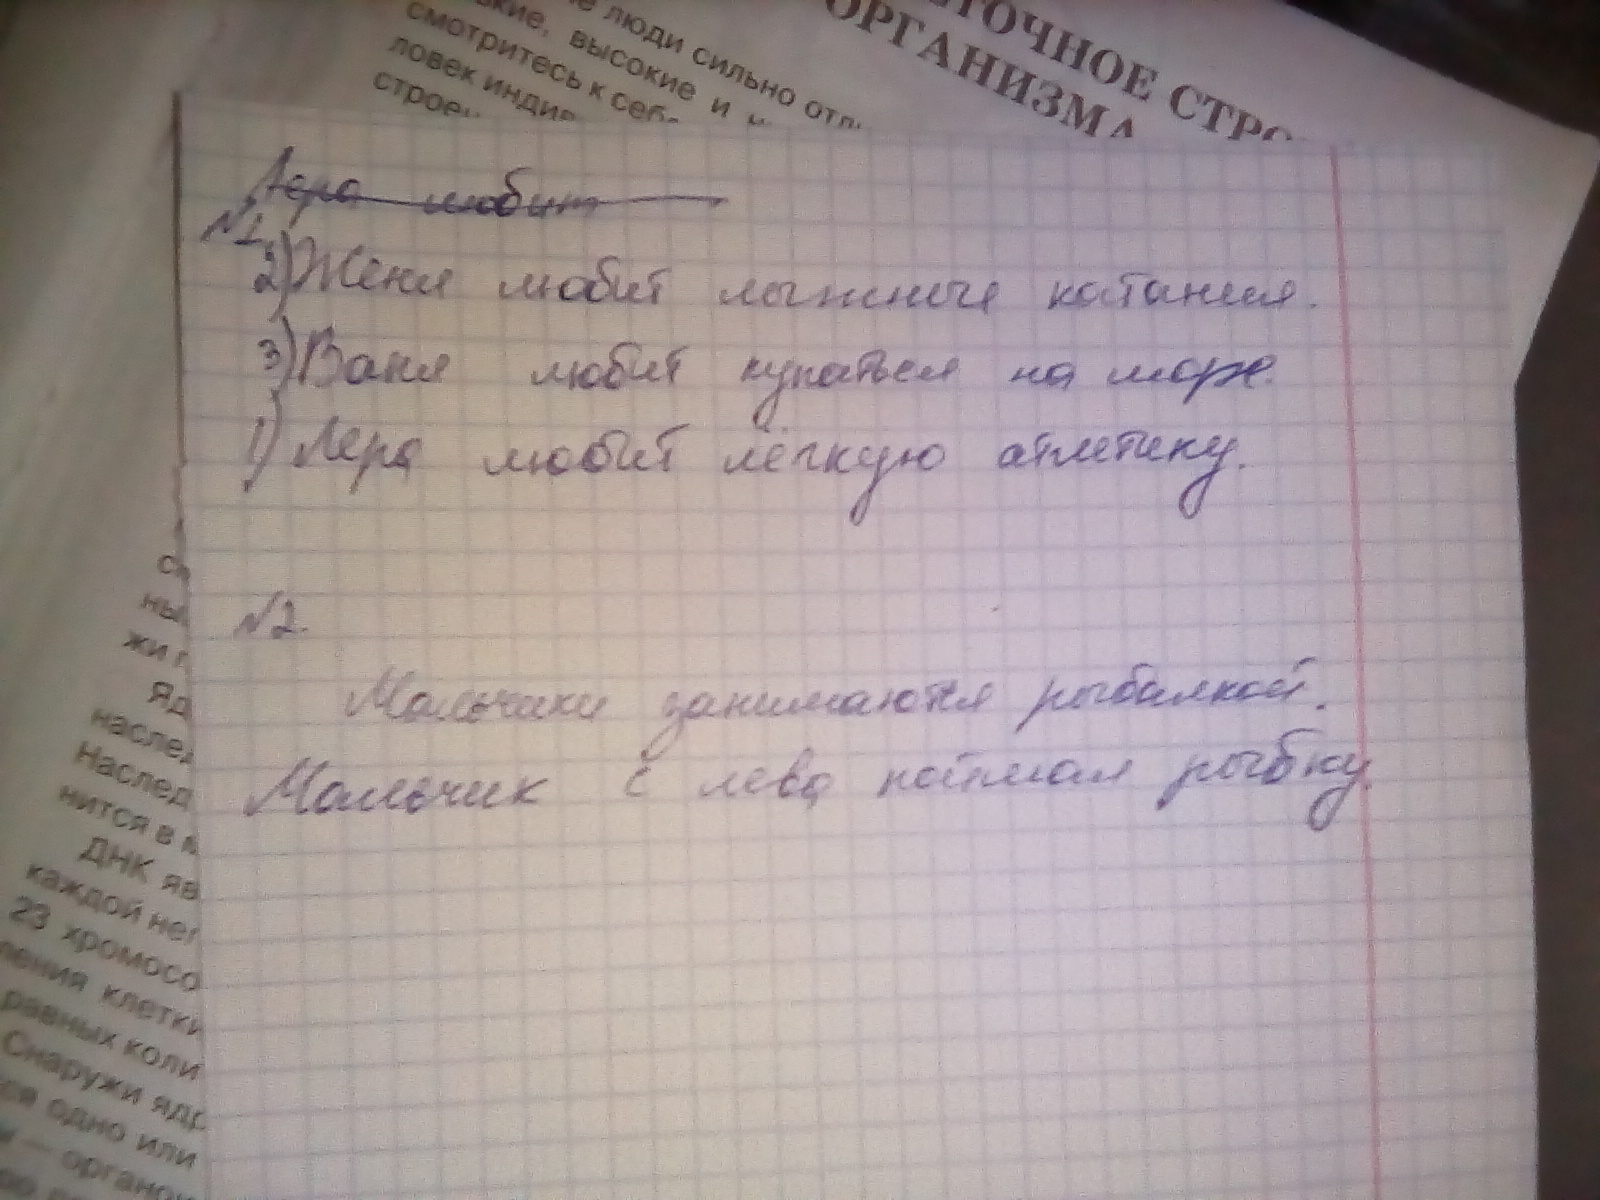 ТОЧНОЕ СТРО
ОРГАНИЗМА
люди сильно отл
кие, высокие и
смотритесь к себе
ловек индив
строен
Лера любит
№1.
2) Женя любит лыжные катания.
3) Ваня любит купаться на море.
1) Лера любит лёгкую атлетику.
№2.
Мальчики занимаются рыбалкой.
Мальчик с лева поймал рыбку.
ны
жи п
Яд
наслед
Наслед
нится в
ДНК яв
каждой
23 хромосо
ления клетки
равных коли
Снаружи ядр
ся одно или
— органо